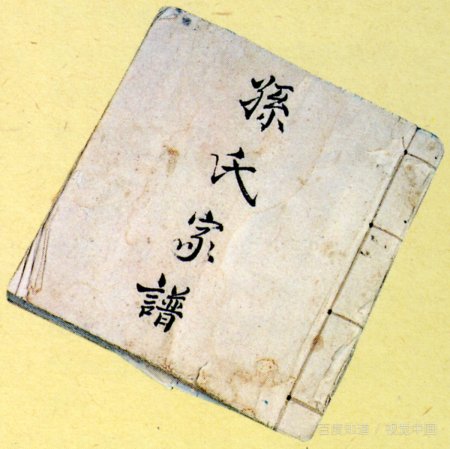 孫氏家譜
百度知道 / 视觉中国